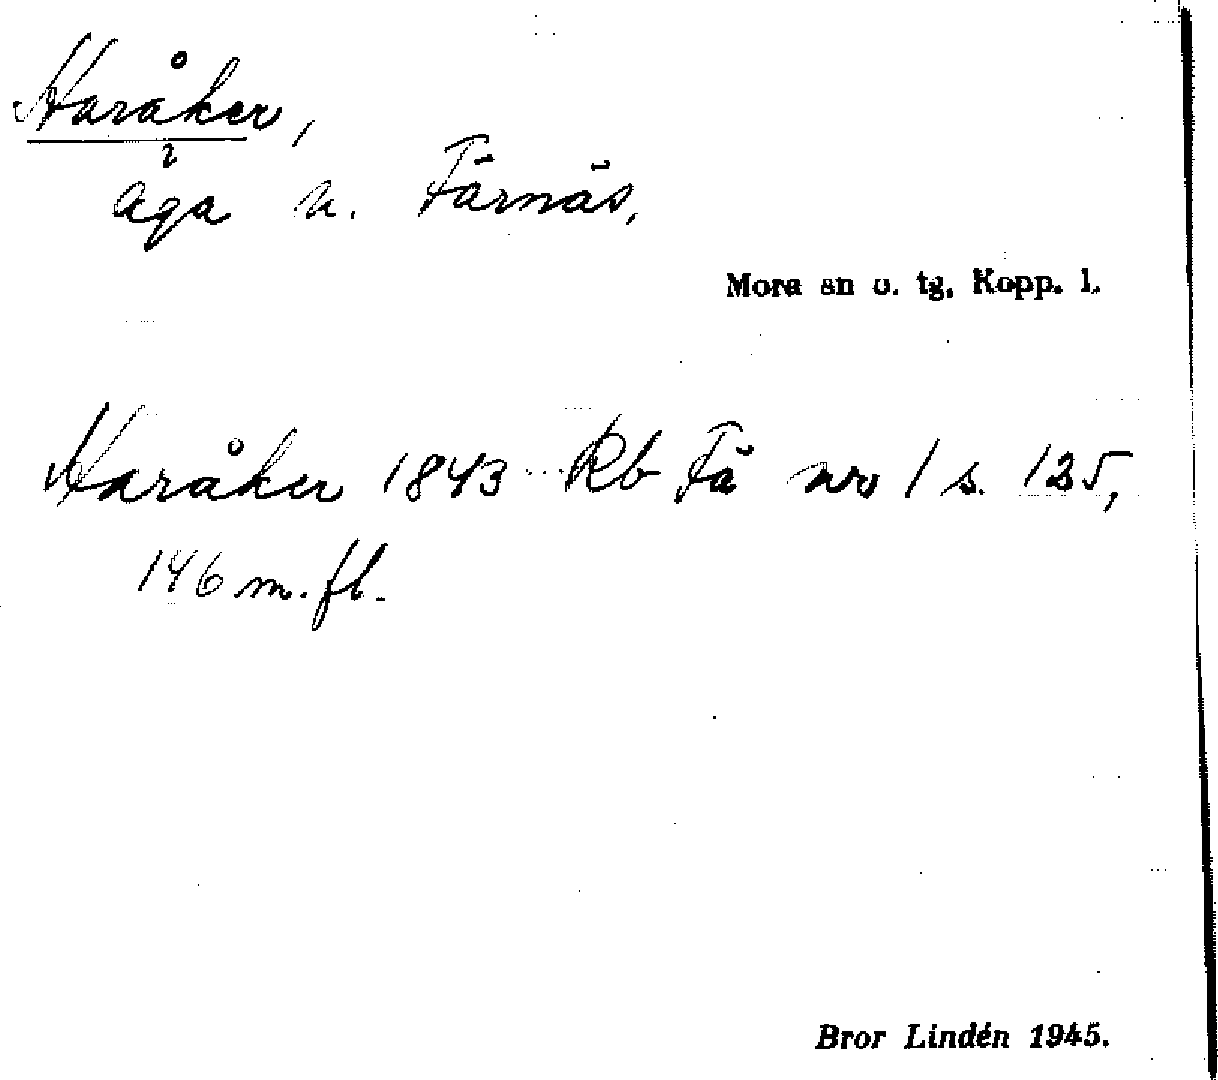 Haråker,
äga u. Färnäs,
Mora sn o. tg, Kopp. l.
Haråker 1843 Rb Fä nro 1 s. 125,
146 m. fl.
Bror Lindén 1945.